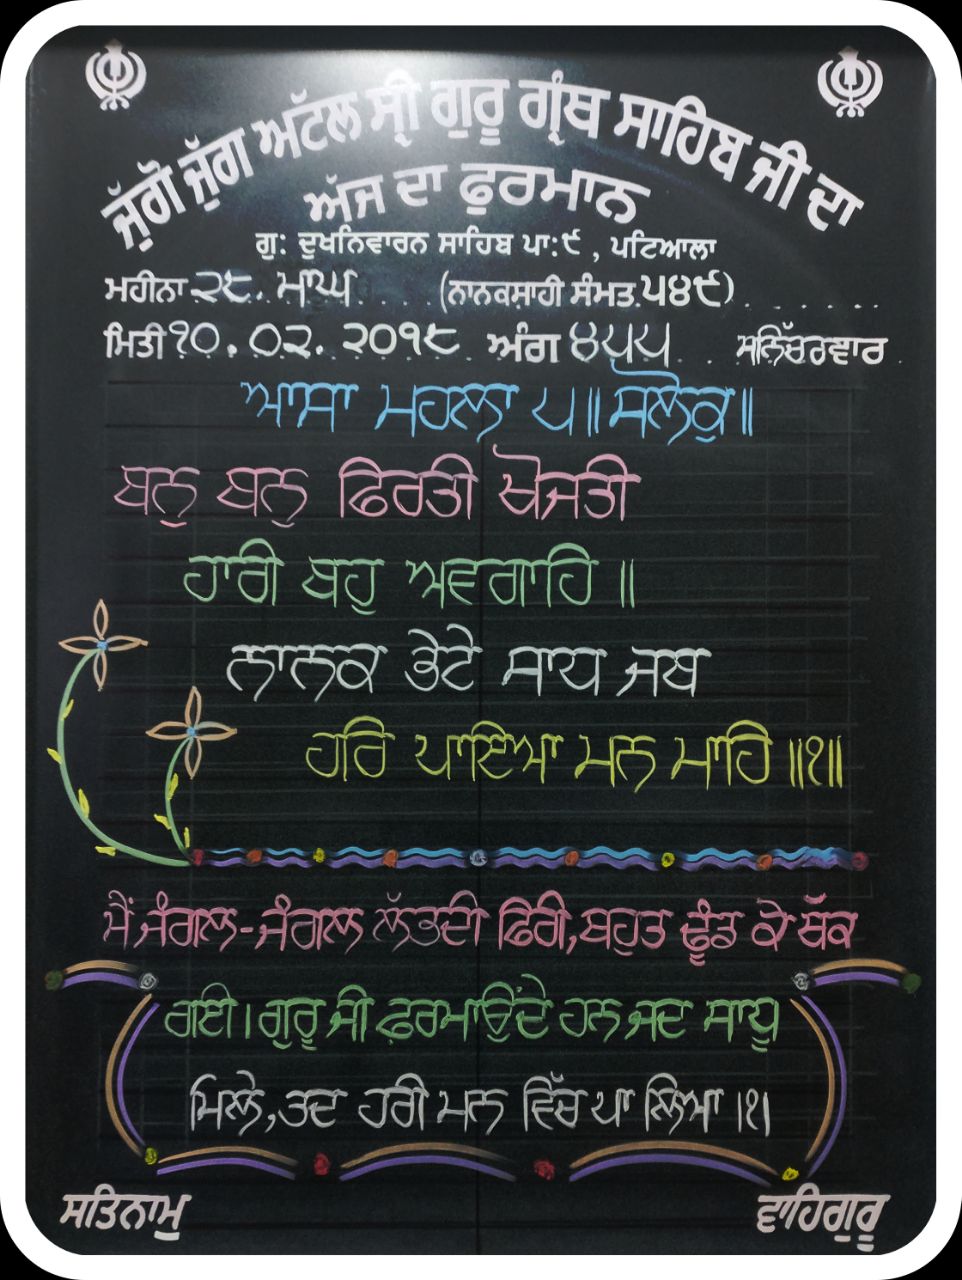 ਜੁੱਗੋ ਜੁੱਗ ਅੱਟਲ ਸ੍ਰੀ ਗੁਰੂ ਗ੍ਰੰਥ ਸਾਹਿਬ ਜੀ ਦਾ
ਅੱਜ ਦਾ ਫੁਰਮਾਨ
ਗੁ: ਦੁਖਨਿਵਾਰਨ ਸਾਹਿਬ ਪਾ:੯ , ਪਟਿਆਲਾ
ਮਹੀਨਾ ੨੮. ਮਾਘ (ਨਾਨਕਸਾਹੀ ਸੰਮਤ ੫੪੯)
ਮਿਤੀ ੧੦.੦੨.੨੦੧੮ ਅੰਗ ੪੫੫ ਸਨਿੱਚਰਵਾਰ
ਆਸਾ ਮਹਲਾ ੫॥ ਸਲੋਕੁ॥
ਬਨੁ ਬਨੁ ਫਿਰਤੀ ਖੋਜਤੀ
ਹਾਰੀ ਬਹੁ ਅਵਗਾਹਿ ॥
ਨਾਨਕ ਭੇਟੇ ਸਾਧ ਜਬ
ਹਰਿ ਪਾਇਆ ਮਨ ਮਾਹਿ ॥੧॥
ਮੈਂ ਜੰਗਲ-ਜੰਗਲ ਲੱਭਦੀ ਫਿਰੀ,ਬਹੁਤ ਢੂੰਡ ਕੇ ਥੱਕ
ਗਈ। ਗੁਰੂ ਜੀ ਫ਼ਰਮਾਉਂਦੇ ਹਨ ਜਦ ਸਾਧੂ
ਮਿਲੇ,ਤਦ ਹਰੀ ਮਨ ਵਿੱਚ ਪਾ ਲਿਆ ।੧।
ਸਤਿਨਾਮੁ ਵਾਹਿਗੁਰੂ